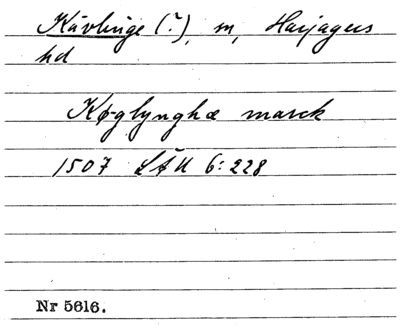 Kävlinge (?), sn, Harjagers
hd
Køglynghæ marck
1507 LÄU 6:228
Nr 5616.